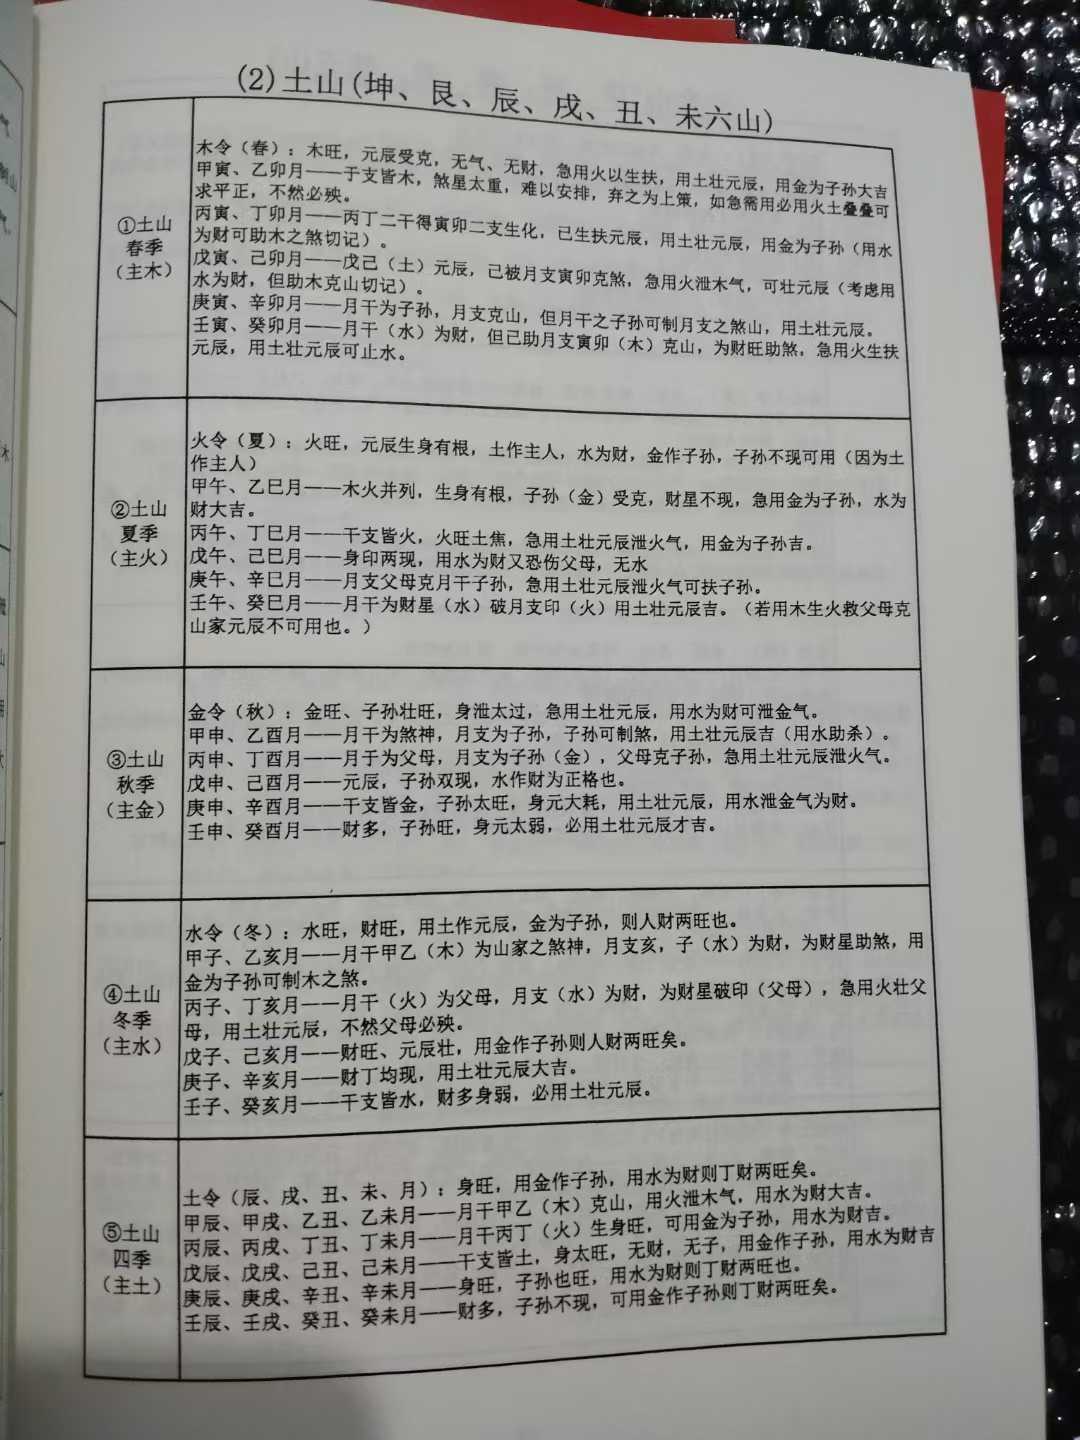 (2)土山(坤、艮、辰、戌、丑、未六山)
①土山
春季
(主木)
木令(春)：木旺，元辰受克，无气、无财，急用火以生扶，用土壮元辰，用金为子孙大吉
甲寅、乙卯月——于支皆木，煞星太重，难以安排，弃之为上策，如急需用必用火土叠叠可
求平正，不然必殃。
丙寅、丁卯月——丙丁二干得寅卯二支生化，已生扶元辰，用土壮元辰，用金为子孙(用水
为财可助木之煞切记)。
戊寅、己卯月——戊己(土)元辰，己被月支寅卯克煞，急用火泄木气，可壮元辰(考虑用
水为财，但助木克山切记)。
庚寅、辛卯月——月干为子孙，月支克山，但月干之子孙可制月支之煞山，用土壮元辰。
壬寅、癸卯月——月干(水)为财，但已助月支寅卯(木)克山，为财旺助煞，急用火生扶
元辰，用土壮元辰可止水。
②土山
夏季
(主火)
火令(夏)：火旺，元辰生身有根，土作主人，水为财，金作子孙，子孙不现可用(因为土
作主人)
甲午、乙巳月——木火并列，生身有根，子孙(金)受克，财星不现，急用金为子孙，水为
财大吉。
丙午、丁巳月——干支皆火，火旺土焦，急用土壮元辰泄火气，用金为子孙吉。
戊午、己巳月——身印两现，用水为财又恐伤父母，无水
庚午、辛巳月——月支父母克月干子孙，急用土壮元辰泄火气可扶子孙。
壬午、癸巳月——月干为财星(水)破月支印(火)用土壮元辰吉。(若用木生火救父母克
山家元辰不可用也。)
③土山
秋季
(主金)
金令(秋)：金旺、子孙壮旺，身泄太过，急用土壮元辰，用水为财可泄金气。
甲申、乙酉月——月干为煞神，月支为子孙，子孙可制煞，用土壮元辰吉(用水助杀)。
丙申、丁酉月——月于为父母，月支为子孙(金)，父母克子孙，急用土壮元辰泄火气。
戊申、己酉月——元辰，子孙双现，水作财为正格也。
庚申、辛酉月——干支皆金，子孙太旺，身元大耗，用土壮元辰，用水泄金气为财。
壬申、癸酉月——财多，子孙旺，身元太弱，必用土壮元辰才吉。
④土山
冬季
(主水)
水令(冬)：水旺，财旺，用土作元辰，金为子孙，则人财两旺也。
甲子、乙亥月——月干甲乙(木)为山家之煞神，月支亥，子(水)为财，为财星助煞，用
金为子孙可制木之煞。
丙子、丁亥月——月干(火)为父母，月支(水)为财，为财星破印(父母)，急用火壮父
母，用土壮元辰，不然父母必殃。
戊子、己亥月——财旺、元辰壮，用金作子孙则人财两旺矣。
庚子、辛亥月——财丁均现，用土壮元辰大吉。
壬子、癸亥月——干支皆水，财多身弱，必用土壮元辰。
⑤土山
四季
(主土)
土令(辰、戌、丑、未、月)：身旺，用金作子孙，用水为财则丁财两旺矣。
甲辰、甲戌、乙丑、乙未月——月干甲乙(木)克山，用火泄木气，用水为财大吉。
丙辰、丙戌、丁丑、丁未月——月干丙丁(火)生身旺，可用金为子孙，用水为财吉。
戊辰、戊戌、己丑、己未月——干支皆土，身太旺，无财，无子，用金作子孙，用水为财吉
庚辰、庚戌、辛丑、辛未月——身旺，子孙也旺，用水为财则丁财两旺也。
壬辰、壬戌、癸丑、癸未月——财多，子孙不现，可用金作子孙则丁财两旺矣。